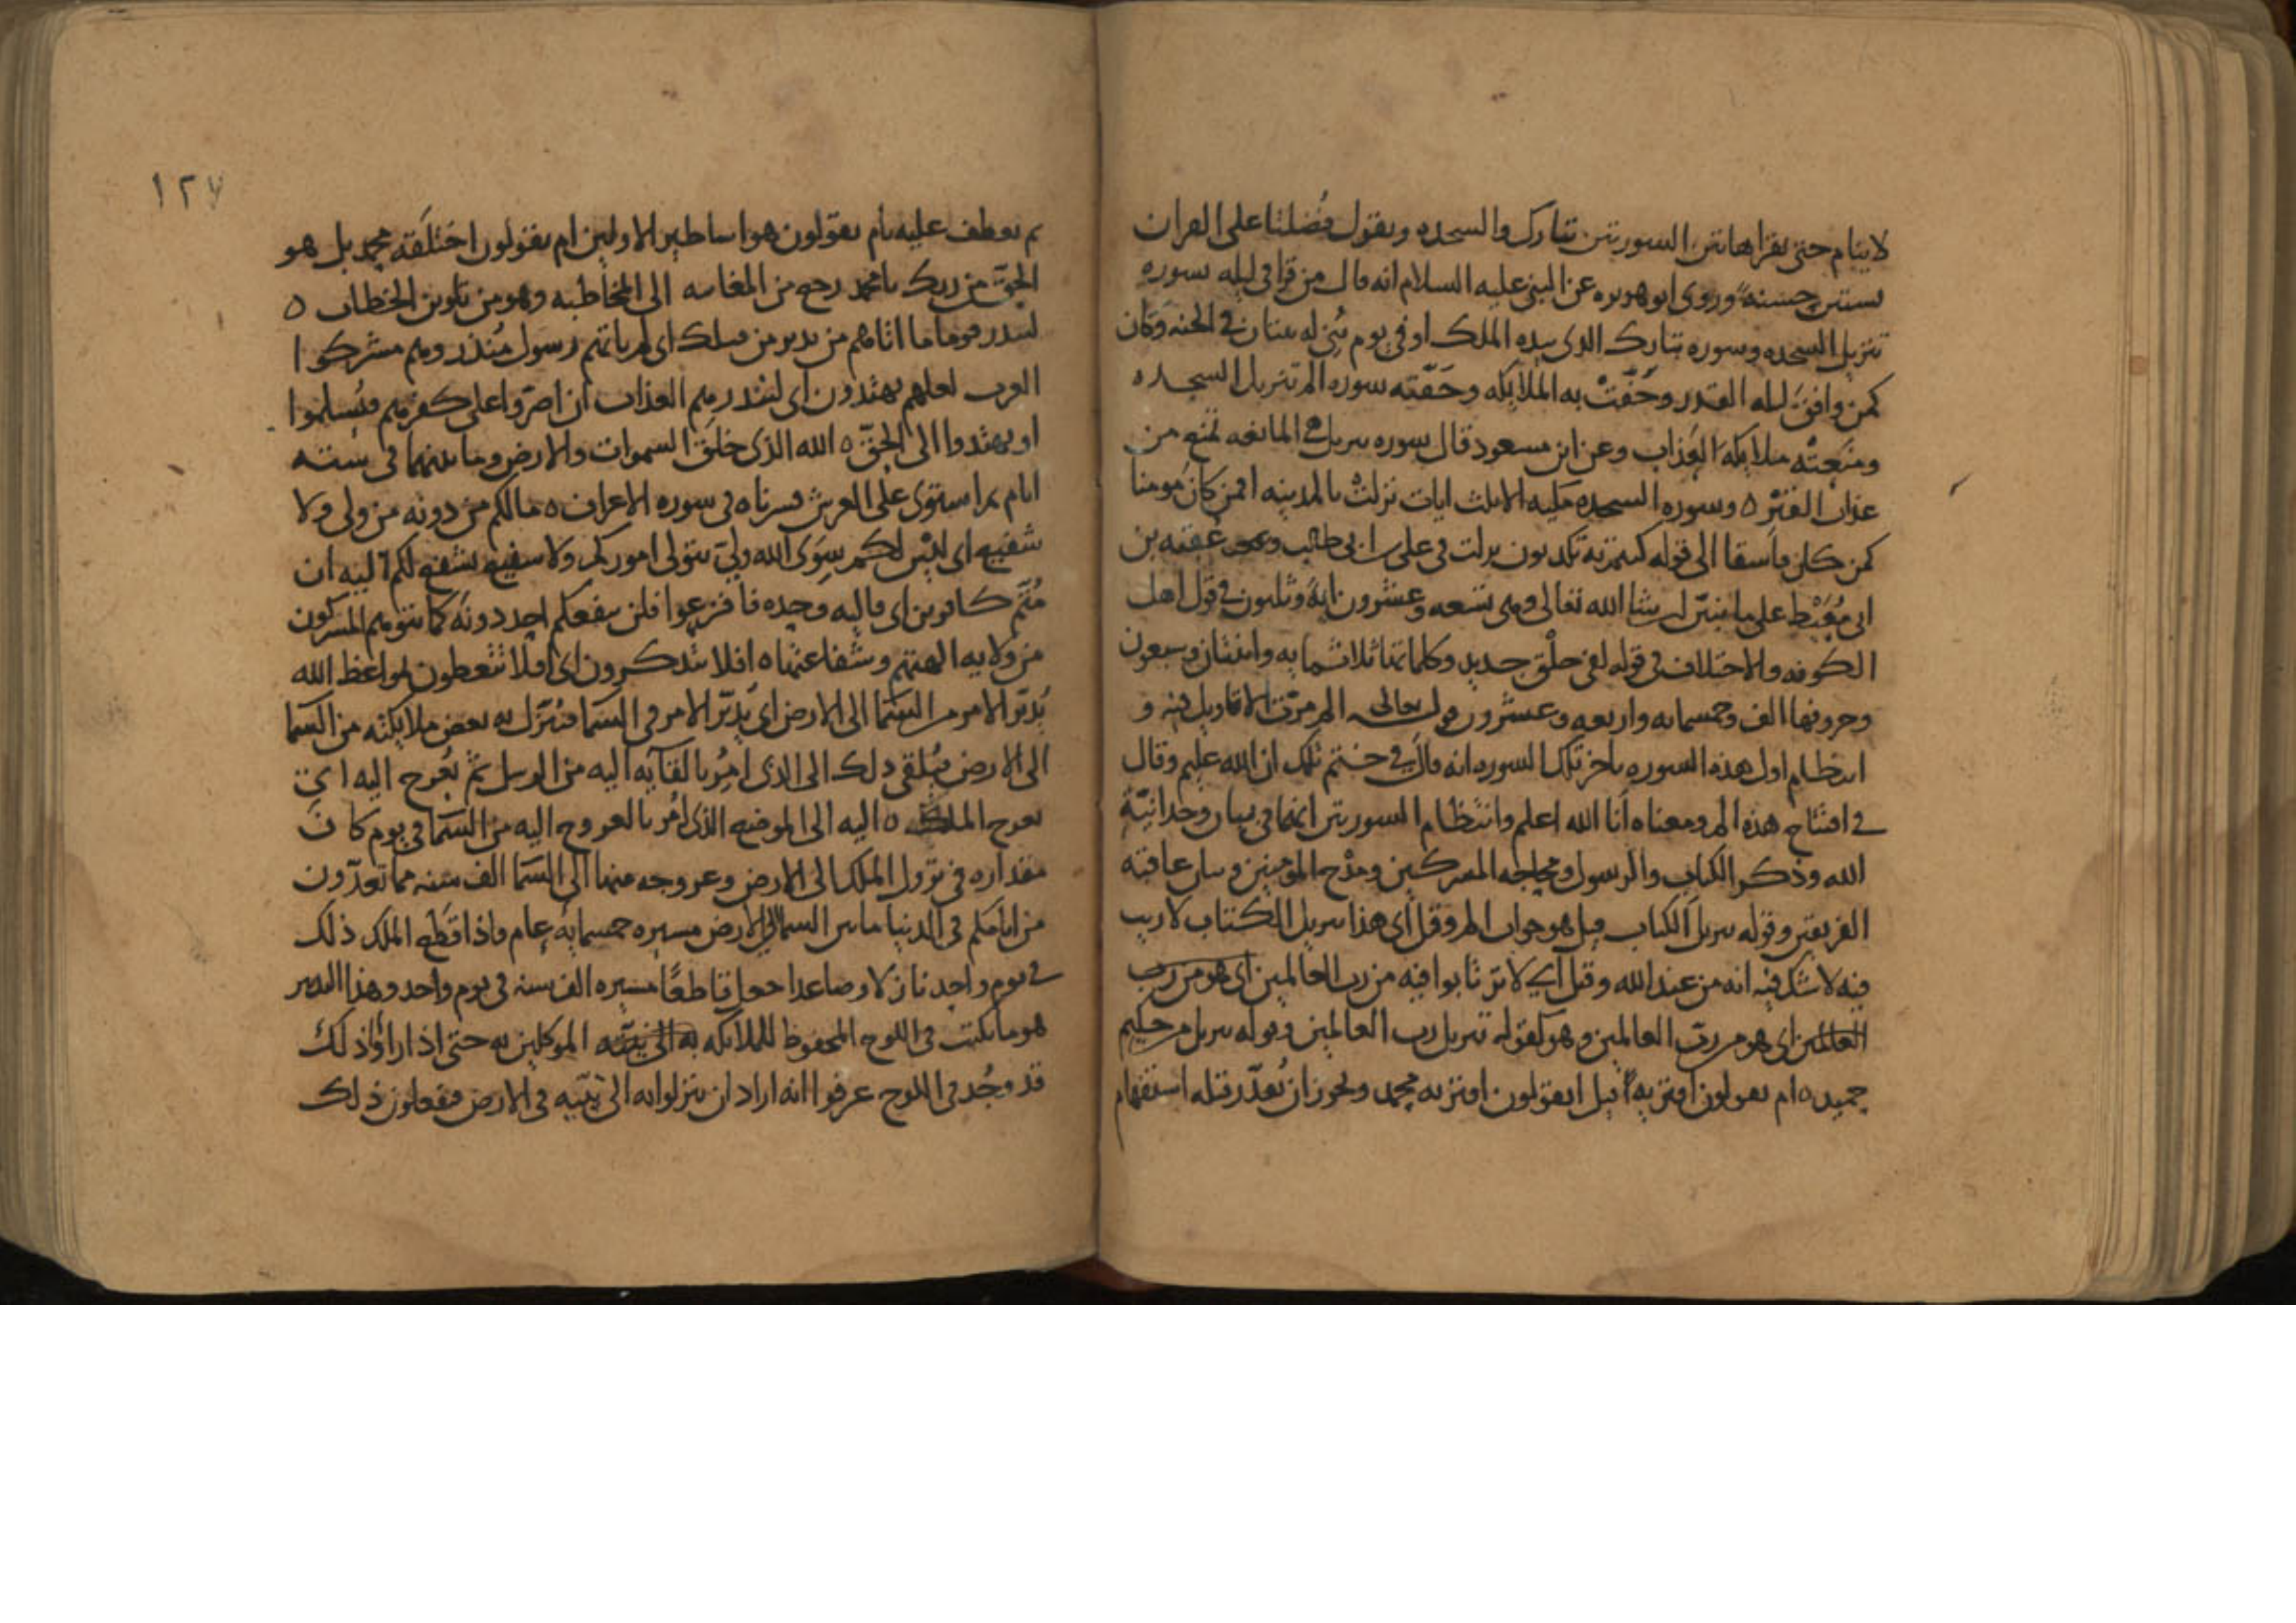 لا ينام حتى يقرا هاتين السورتين تبارك والسجده ويقول فضلتا على القران
بستين حسنة وروى ابو هريره عن النبي عليه السلام انه قال من قرا في ليله سوره
تنزيل السجده وسوره تبارك الذي بيده الملك او في يوم بني له بيتان في الجنه وكان
كمن وافق ليله القدر وحفت به الملايكه وحفته سوره الم تنزيل السجده
ومنعته ملايكه العذاب وعن ابن مسعود قال سوره تنزيل هي المانعه تمنع من
عذاب القبر ه وسوره السجده مكيه الا ثلث ايات نزلت بالمدينه افمن كان مومنا
كمن كان فاسقا الى قوله كنتم به تكذبون نزلت في علي بن ابي طالب وعقبه بن
ابي معيط على ما نبين ان شا الله تعالى وهي تسعه وعشرون ايه وثلثون في قول اهل
الكوفه والاختلاف في قوله لفي خلق جديد وكلماتها ثلاثمايه واثنتان وسبعون
وحروفها الف وخمسمايه واربعه وعشرون قوله تعالى الم مرت الاقاويل فيه و
انتظام اول هذه السوره باخر تلك السوره انه قال في ختم تلك ان الله عليم وقال
في افتتاح هذه الم ومعناه انا الله اعلم وانتظام السورتين انهما في بيان وحدانية
الله وذكر الكتاب والرسول ومحاجه المشركين ومدح المومنين وبيان عاقبه
الفريقين وقوله تنزيل الكتاب قيل هو جواب الم وقيل اي هذا تنزيل الكتاب لا ريب
فيه لا شك فيه انه من عند الله وقيل اي لا ترتابوا فيه من رب العالمين اي هو من رب
العالمين اي هو من رب العالمين وهو كقوله تنزيل رب العالمين وقوله تنزيل من حكيم
حميد ه ام يقولون افتريه قيل ايقولون افتريه محمد ويجوز ان يقدر قبله استفهام
ثم يعطف عليه بام يقولون هو اساطير الاولين ام يقولون اختلقه محمد بل هو
الحق من ربك يا محمد رجع من المغايبه الى المخاطبه وهو من تلوين الخطاب ه
لتنذر قوما ما اتاهم من نذير من قبلك اي لم ياتهم رسول منذر وهم مشركوا
العرب لعلهم يهتدون اي لتنذرهم العذاب ان اصروا على كفرهم فيسلموا
او يهتدوا الى الحق ه الله الذي خلق السموات والارض وما بينهما في سته
ايام ثم استوى على العرش فسرناه في سوره الاعراف ه ما لكم من دونه من ولي ولا
شفيع اي ليس لكم سوى الله ولي يتولى اموركم ولا شفيع يشفع لكم اليه ان
متم كافرين اي فاليه وحده فافزعوا فلن ينفعكم احد دونه كما يتوهم المشركون
من ولايه الهتهم وشفاعتها ه افلا تتذكرون اي افلا تتعظون لمواعظ الله
يدبر الامر من السما الى الارض اي يدبر الامر في السما فينزل به بعض ملايكته من السما
الى الارض فيلقي ذلك الى الذي امر بالقايه اليه من الرسل ثم يعرج اليه اي
يعرج الملك ه اليه الى الموضع الذي امر بالعروج اليه من السما في يوم كان
مقداره في نزول الملك الى الارض وعروجه منها الى السما الف سنه مما تعدون
من ايامكم في الدنيا ما بين السما والارض مسيره خمسمايه عام واذا قطع الملك ذلك
في يوم واحد نازلا وصاعدا جعل قاطعا مسيره الف سنه في يوم واحد وهذا التدبير
هو ما يكتب في اللوح المحفوظ للملايكه به الى نبيه الموكلين به حتى اذا راوا ذلك
قد وجد في اللوح عرفوا انه اراد ان ينزلوا به الى نبيه في الارض فيفعلون ذلك
١٢٧